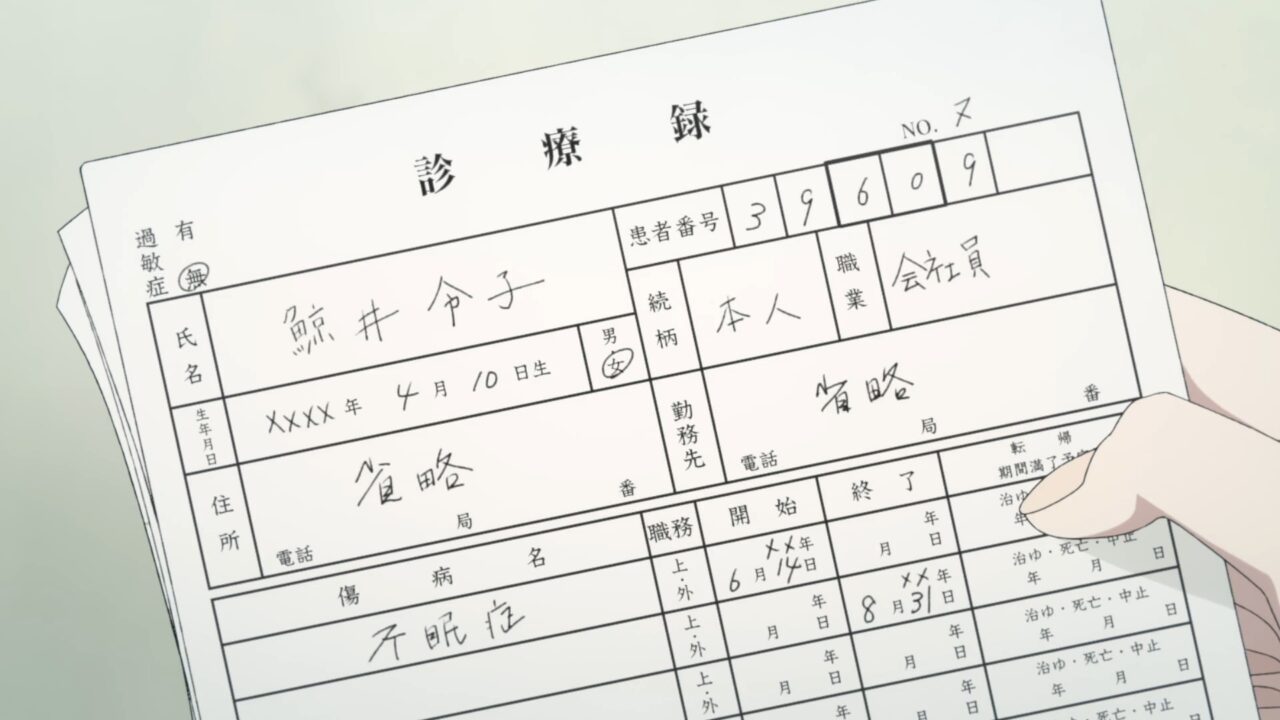 診療録
NO. 7
過敏症 有 無
患者番号 3 9 6 0 9
氏名 鯨井令子
続柄 本人
職業 会社員
生年月日 XXXX年 4月 10日生
男 女
住所 省略
電話 局 番
勤務先 省略
電話 局 番
傷病名 職務 開始 終了 転帰
期間満了予定
不眠症 上・外 XX年 6月14日 年 月 日 治ゆ
年
上・外 年 月 日 XX年 8月31日 治ゆ・死亡・中止
年 月 日
上・外 年 月 日 年 月 日 治ゆ・死亡・中止
年 月 日
年 月 日 治ゆ・死亡・中止
年 月 日